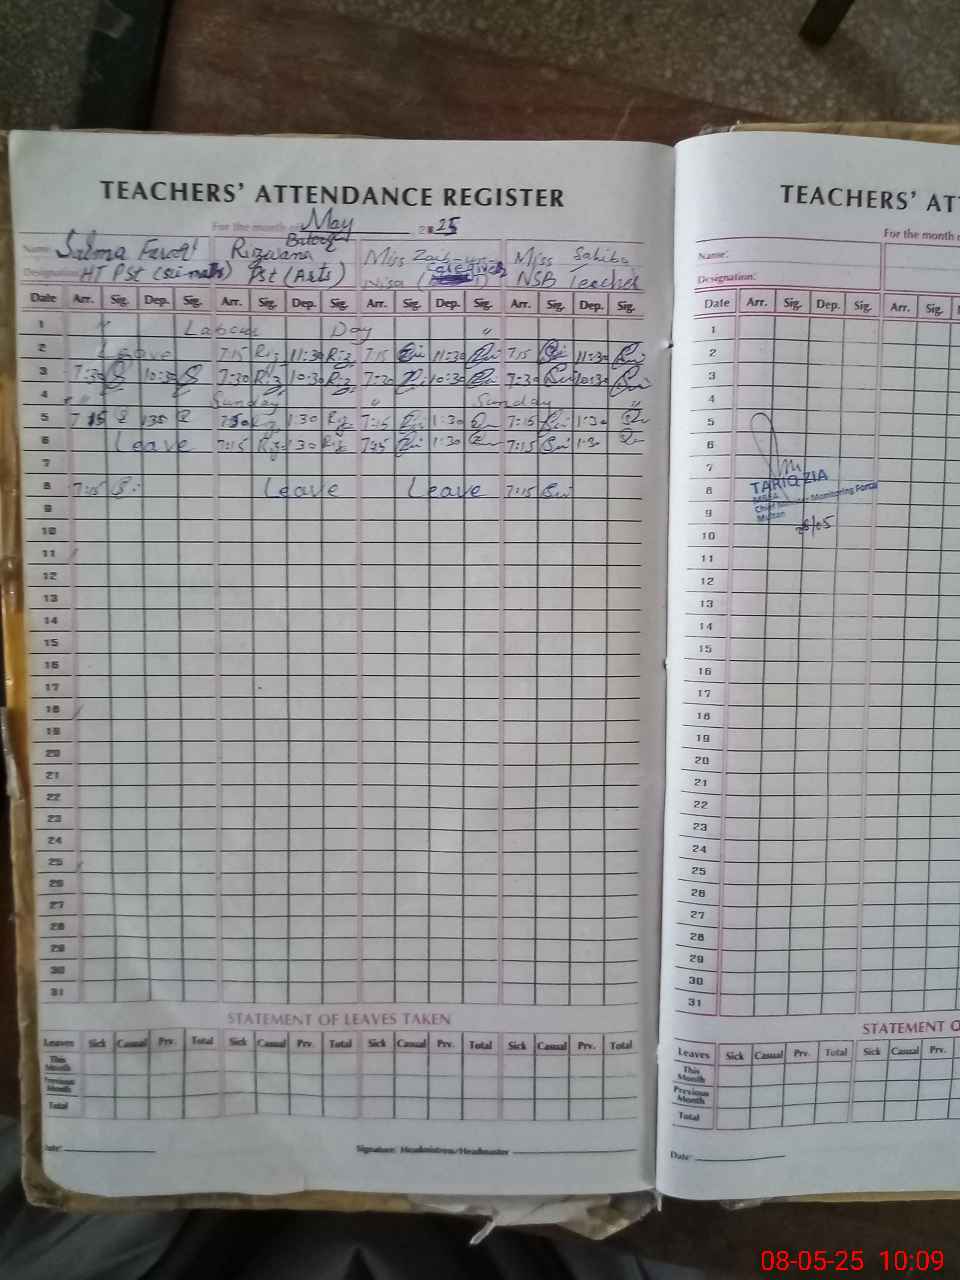 TEACHERS' ATTENDANCE REGISTER
For the month of May 2025
Name: Salma Rizwana Batool Miss Miss Sahiba
Designation: HT PST Pst (Arts) Nisa NSB Teacher
Date Arr. Sig. Dep. Sig. Arr. Sig. Dep. Sig. Arr. Sig. Dep. Sig. Arr. Sig. Dep. Sig.
1 " Labour Day "
2 Leave 7:15 Riz 11:30 Riz 7:15 11:30 7:15 11:30
3 7:30 10:30 7:30 Riz 10:30 Riz 7:30 10:30 7:30 10:30
4 " " Sunday " Sunday "
5 7:15 1:30 1:30 Riz 7:15 1:30 7:15 1:30
6 Leave 7:15 Riz 1:30 Riz 7:15 1:30 7:15 1:30
7
8 7:15 Leave Leave 7:15
9
10
11
12
13
14
15
16
17
18
19
20
21
22
23
24
25
26
27
28
29
30
31
STATEMENT OF LEAVES TAKEN
Leaves Sick Casual Prv. Total Sick Casual Prv. Total Sick Casual Prv. Total Sick Casual Prv. Total
This Month
Previous Month
Total
Date: Signature: Headmistress/Headmaster
TEACHERS' AT
For the month o
Name:
Designation:
Date Arr. Sig. Dep. Sig. Arr. Sig.
1
2
3
4
5
6
7
8 TARIQ ZIA
MEA
Chief Minister Monitoring Force
9 Multan
08/05
10
11
12
13
14
15
16
17
18
19
20
21
22
23
24
25
26
27
28
29
30
31
STATEMENT O
Leaves Sick Casual Prv. Total Sick Casual Prv.
This Month
Previous Month
Total
Date:
08-05-25 10:09